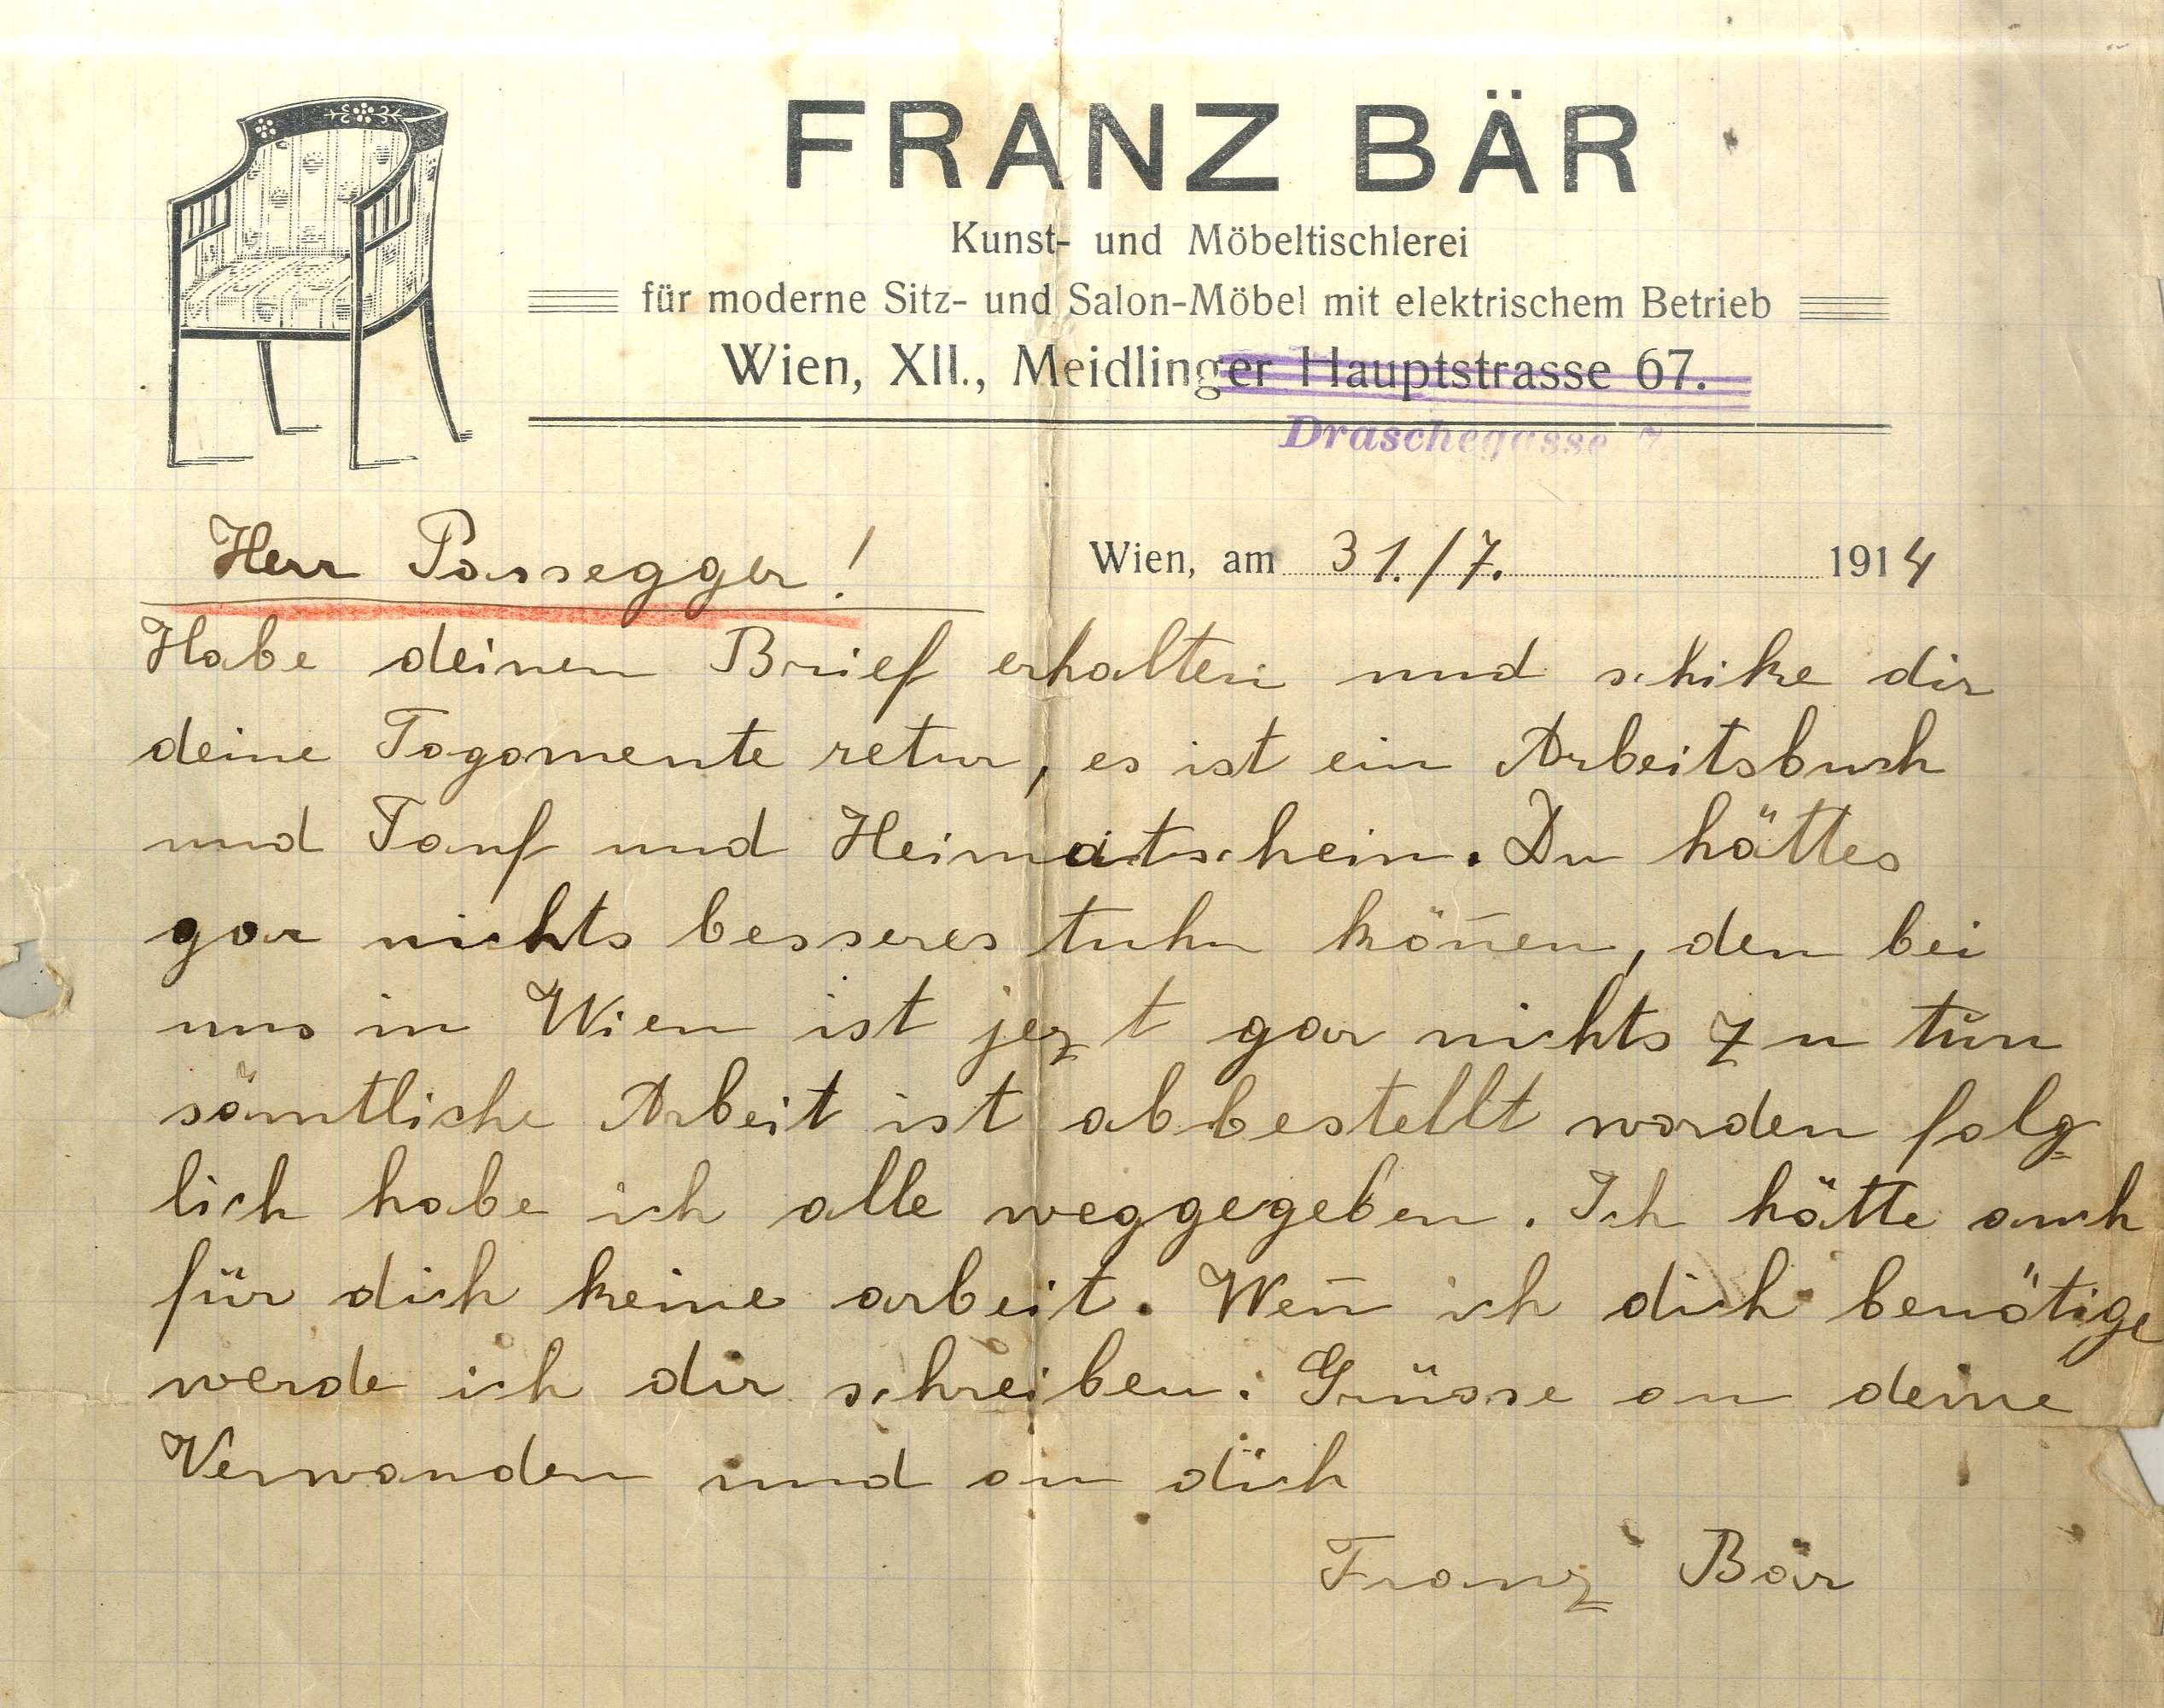 FRANZ BÄR
Kunst- und Möbeltischlerei
für moderne Sitz- und Salon-Möbel mit elektrischem Betrieb
Wien, XII., Meidlinger Hauptstrasse 67.
Draschegasse 7
Herr Passegger!
Wien, am 31./7. 1914
Habe deinen Brief erhalten und schike dir
deine Togomente retur, es ist ein Arbeitsbuch
und Tauf und Heimatschein. Du hättes
gar nichts besseres tuhn kön̄en, den bei
uns in Wien ist jezt gar nichts zu tun
sämtliche Arbeit ist abbestellt worden folg
lich habe ich alle weggegeben. Ich hätte auch
für dich keine arbeit. Wen̄ ich dich benötige
werde ich dir schreiben. Grüsse an deine
Verwanden und an dich
Franz Bär